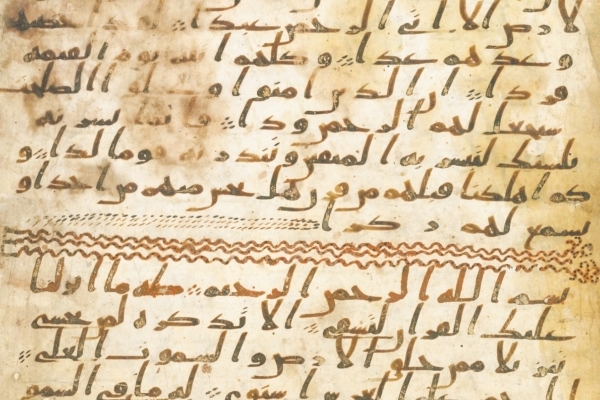 لارض الا اتى الرحمن عبدا لقد
وعدهم عدا وكلهم اتيه يوم القيمه
فردا ان الذين امنوا وعملوا الصلحت
سيجعل لهم الرحمن ودا فانما يسرنه
بلسنك لتبشر به المتقين وتنذر به قوما لدا و
كم اهلكنا قبلهم من قرن هل تحس منهم من احد او
تسمع لهم ركزا
بسم الله الرحمن الرحيم طه ما انزلنا
عليك القران لتشقى الا تذكره لمن يخشى
تنزيلا ممن خلق الارض والسموت العلى
الرحمن على العرش استوى له ما في السمو